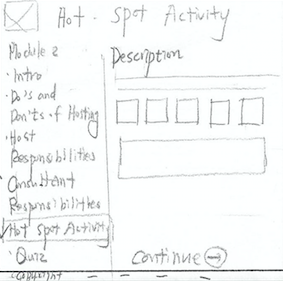 Hot-Spot Activity
Module 2
Description
·Intro
·Do's and
Don'ts of Hosting
·Host
Responsibilities
·Consultant
Responsibilities
Hot Spot Activity
·Quiz
Continue